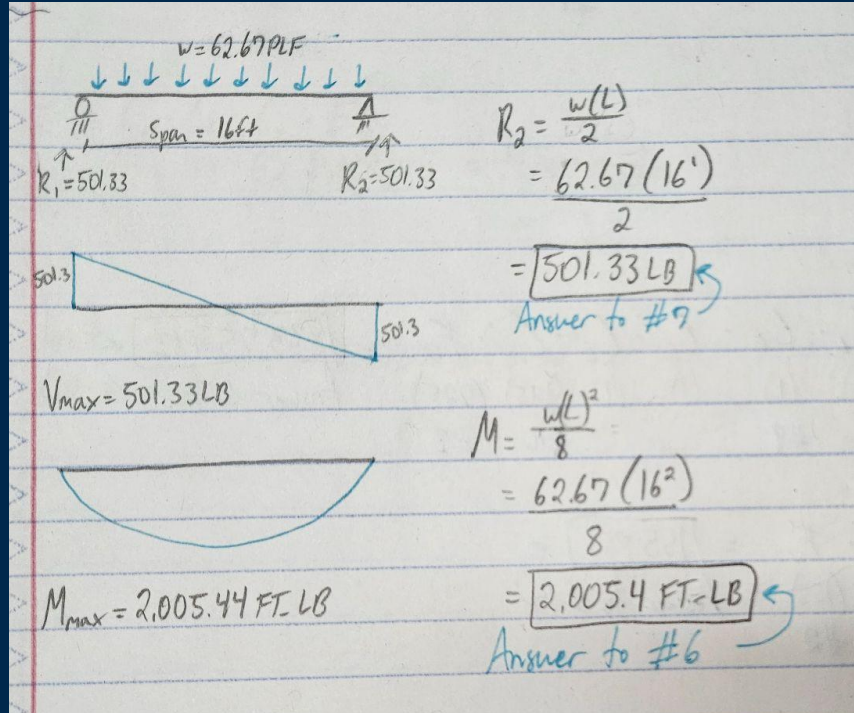 w=62.67PLF
Span = 16ft
R₁=501.33
R₂=501.33
501.3
501.3
Vmax=501.33LB
Mmax=2,005.44 FT-LB
R₂ = w(L)/2
= 62.67(16')
2
= 501.33 LB
Answer to #7
M= w(L)²/8
= 62.67(16²)
8
= 2,005.4 FT-LB
Answer to #6